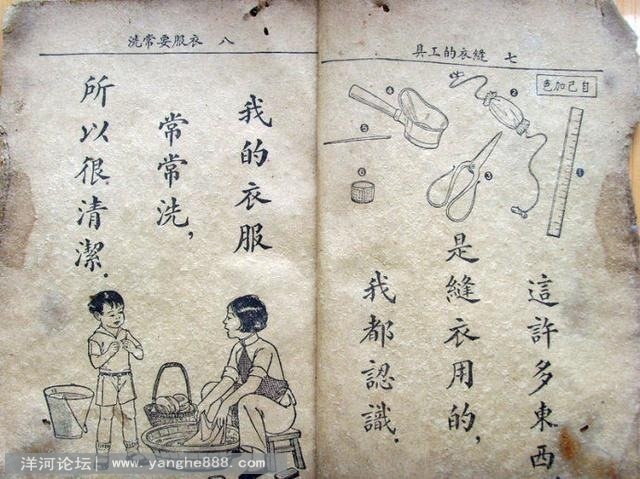 七 縫衣的工具
自己加色
❶
❷
❸
❹
❺
❻
這許多東西,
是縫衣用的,
我都認識.
八 衣服要常洗
我的衣服
常常洗,
所以很清潔.
洋河论坛 www.yanghe888.com